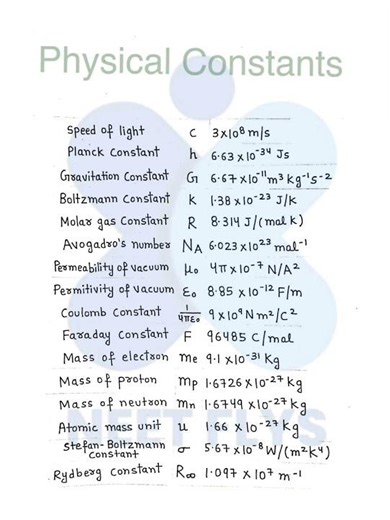 Physical Constants
Speed of light c 3×10⁸ m/s
Planck Constant h 6.63×10⁻³⁴ Js
Gravitation Constant G 6.67×10⁻¹¹ m³ kg⁻¹ s⁻²
Boltzmann Constant K 1.38×10⁻²³ J/K
Molar gas Constant R 8.314 J/(mal K)
Avogadro's number NA 6.023×10²³ mal⁻¹
Permeability of vacuum μ₀ 4π×10⁻⁷ N/A²
Permitivity of vacuum ε₀ 8.85×10⁻¹² F/m
Coulomb Constant 1/4πε₀ 9×10⁹ N m²/C²
Faraday Constant F 96485 C/mal
Mass of electron me 9.1×10⁻³¹ Kg
Mass of proton mp 1.6726×10⁻²⁷ Kg
Mass of neutron mn 1.6749×10⁻²⁷ Kg
Atomic mass unit u 1.66×10⁻²⁷ Kg
Stefan-Boltzmann constant σ 5.67×10⁻⁸ W/(m²K⁴)
Rydberg Constant R∞ 1.097×10⁷ m⁻¹